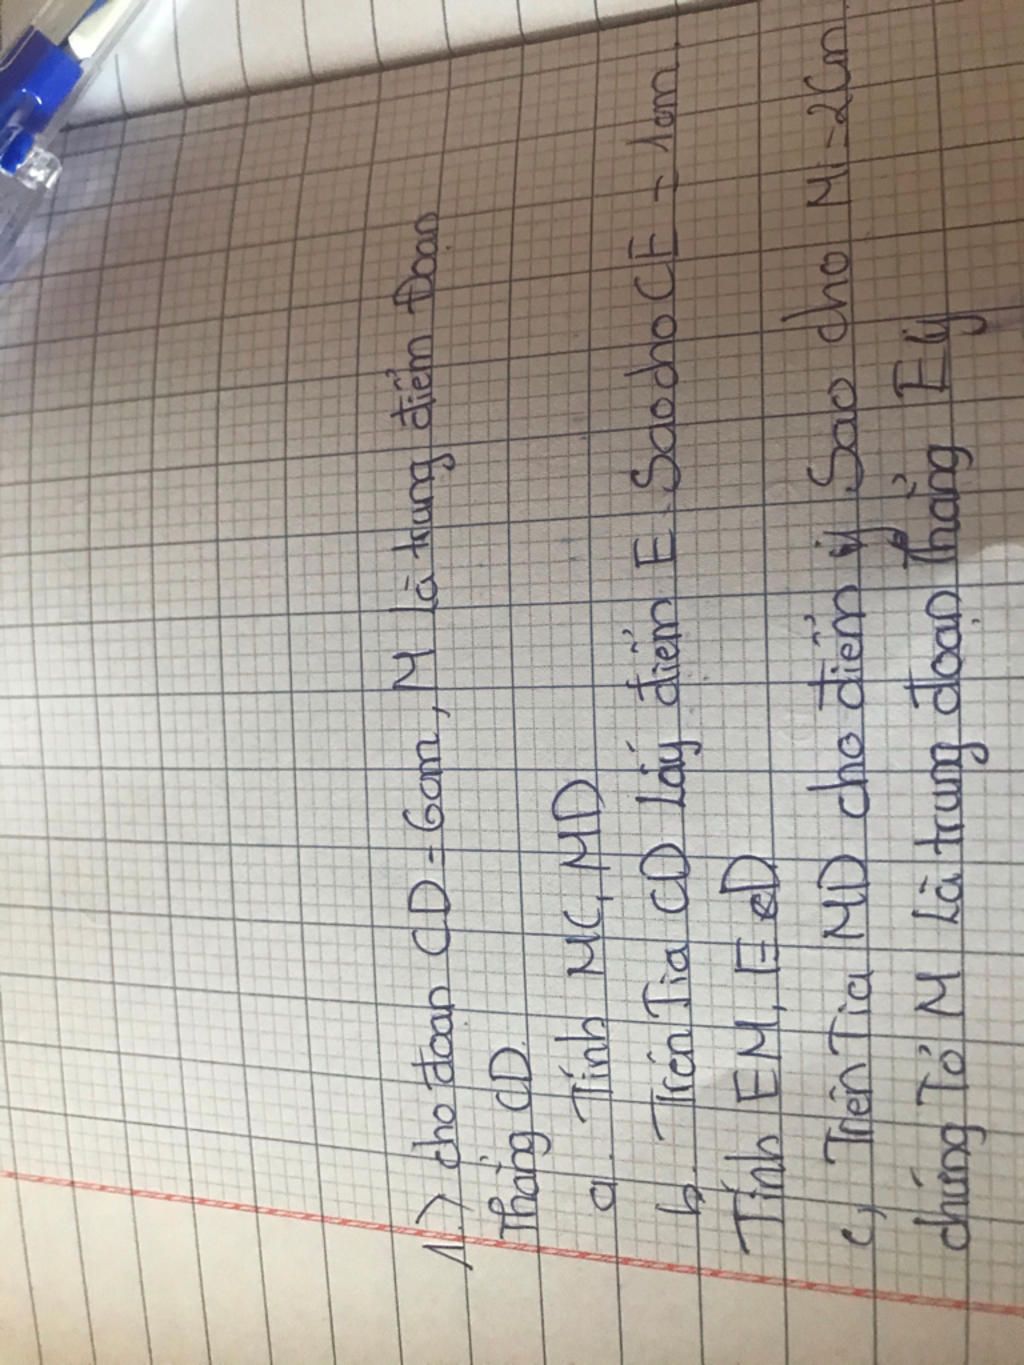 1.> cho đoạn CD = 6cm, M Là trung điểm Đoạn
Thẳng CD
a. Tính MC, MD
b. Trên Tia CD Lấy điểm E. Sao cho CE = 1cm
Tính EM, ED
c, Trên Tia MD cho điểm y Sao cho Mi = 2Cm
chứng Tỏ M Là trung đoạn Thẳng Ey